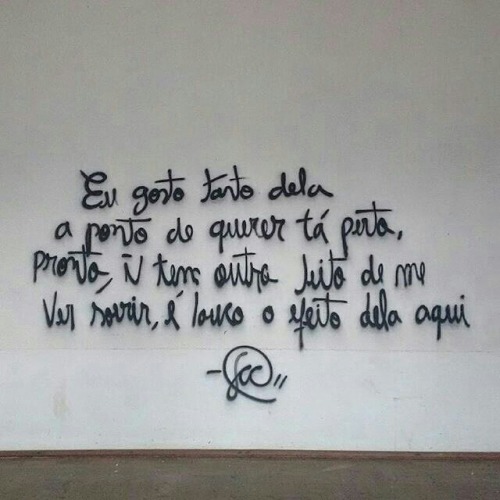 Eu gosto tanto dela
a ponto de querer tá perto,
pronto, Ñ tem outro jeito de me
Ver sorrir, é louco o efeito dela aqui